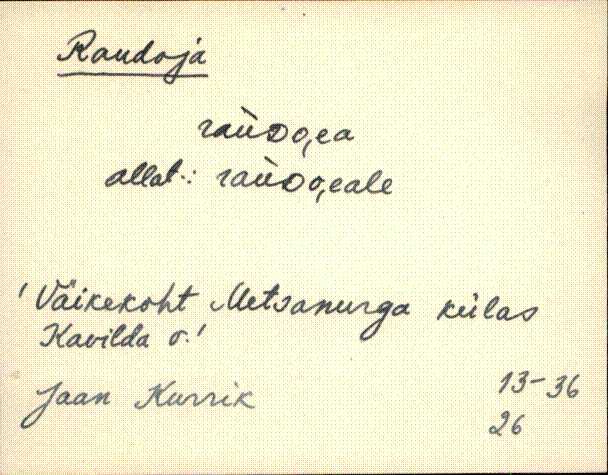 Raudoja
raùDo,ea
allat.: raùDo,eale
'Väikekoht Metsanurga külas
Kavilda v.'
Jaan Kurrik
13-36
26